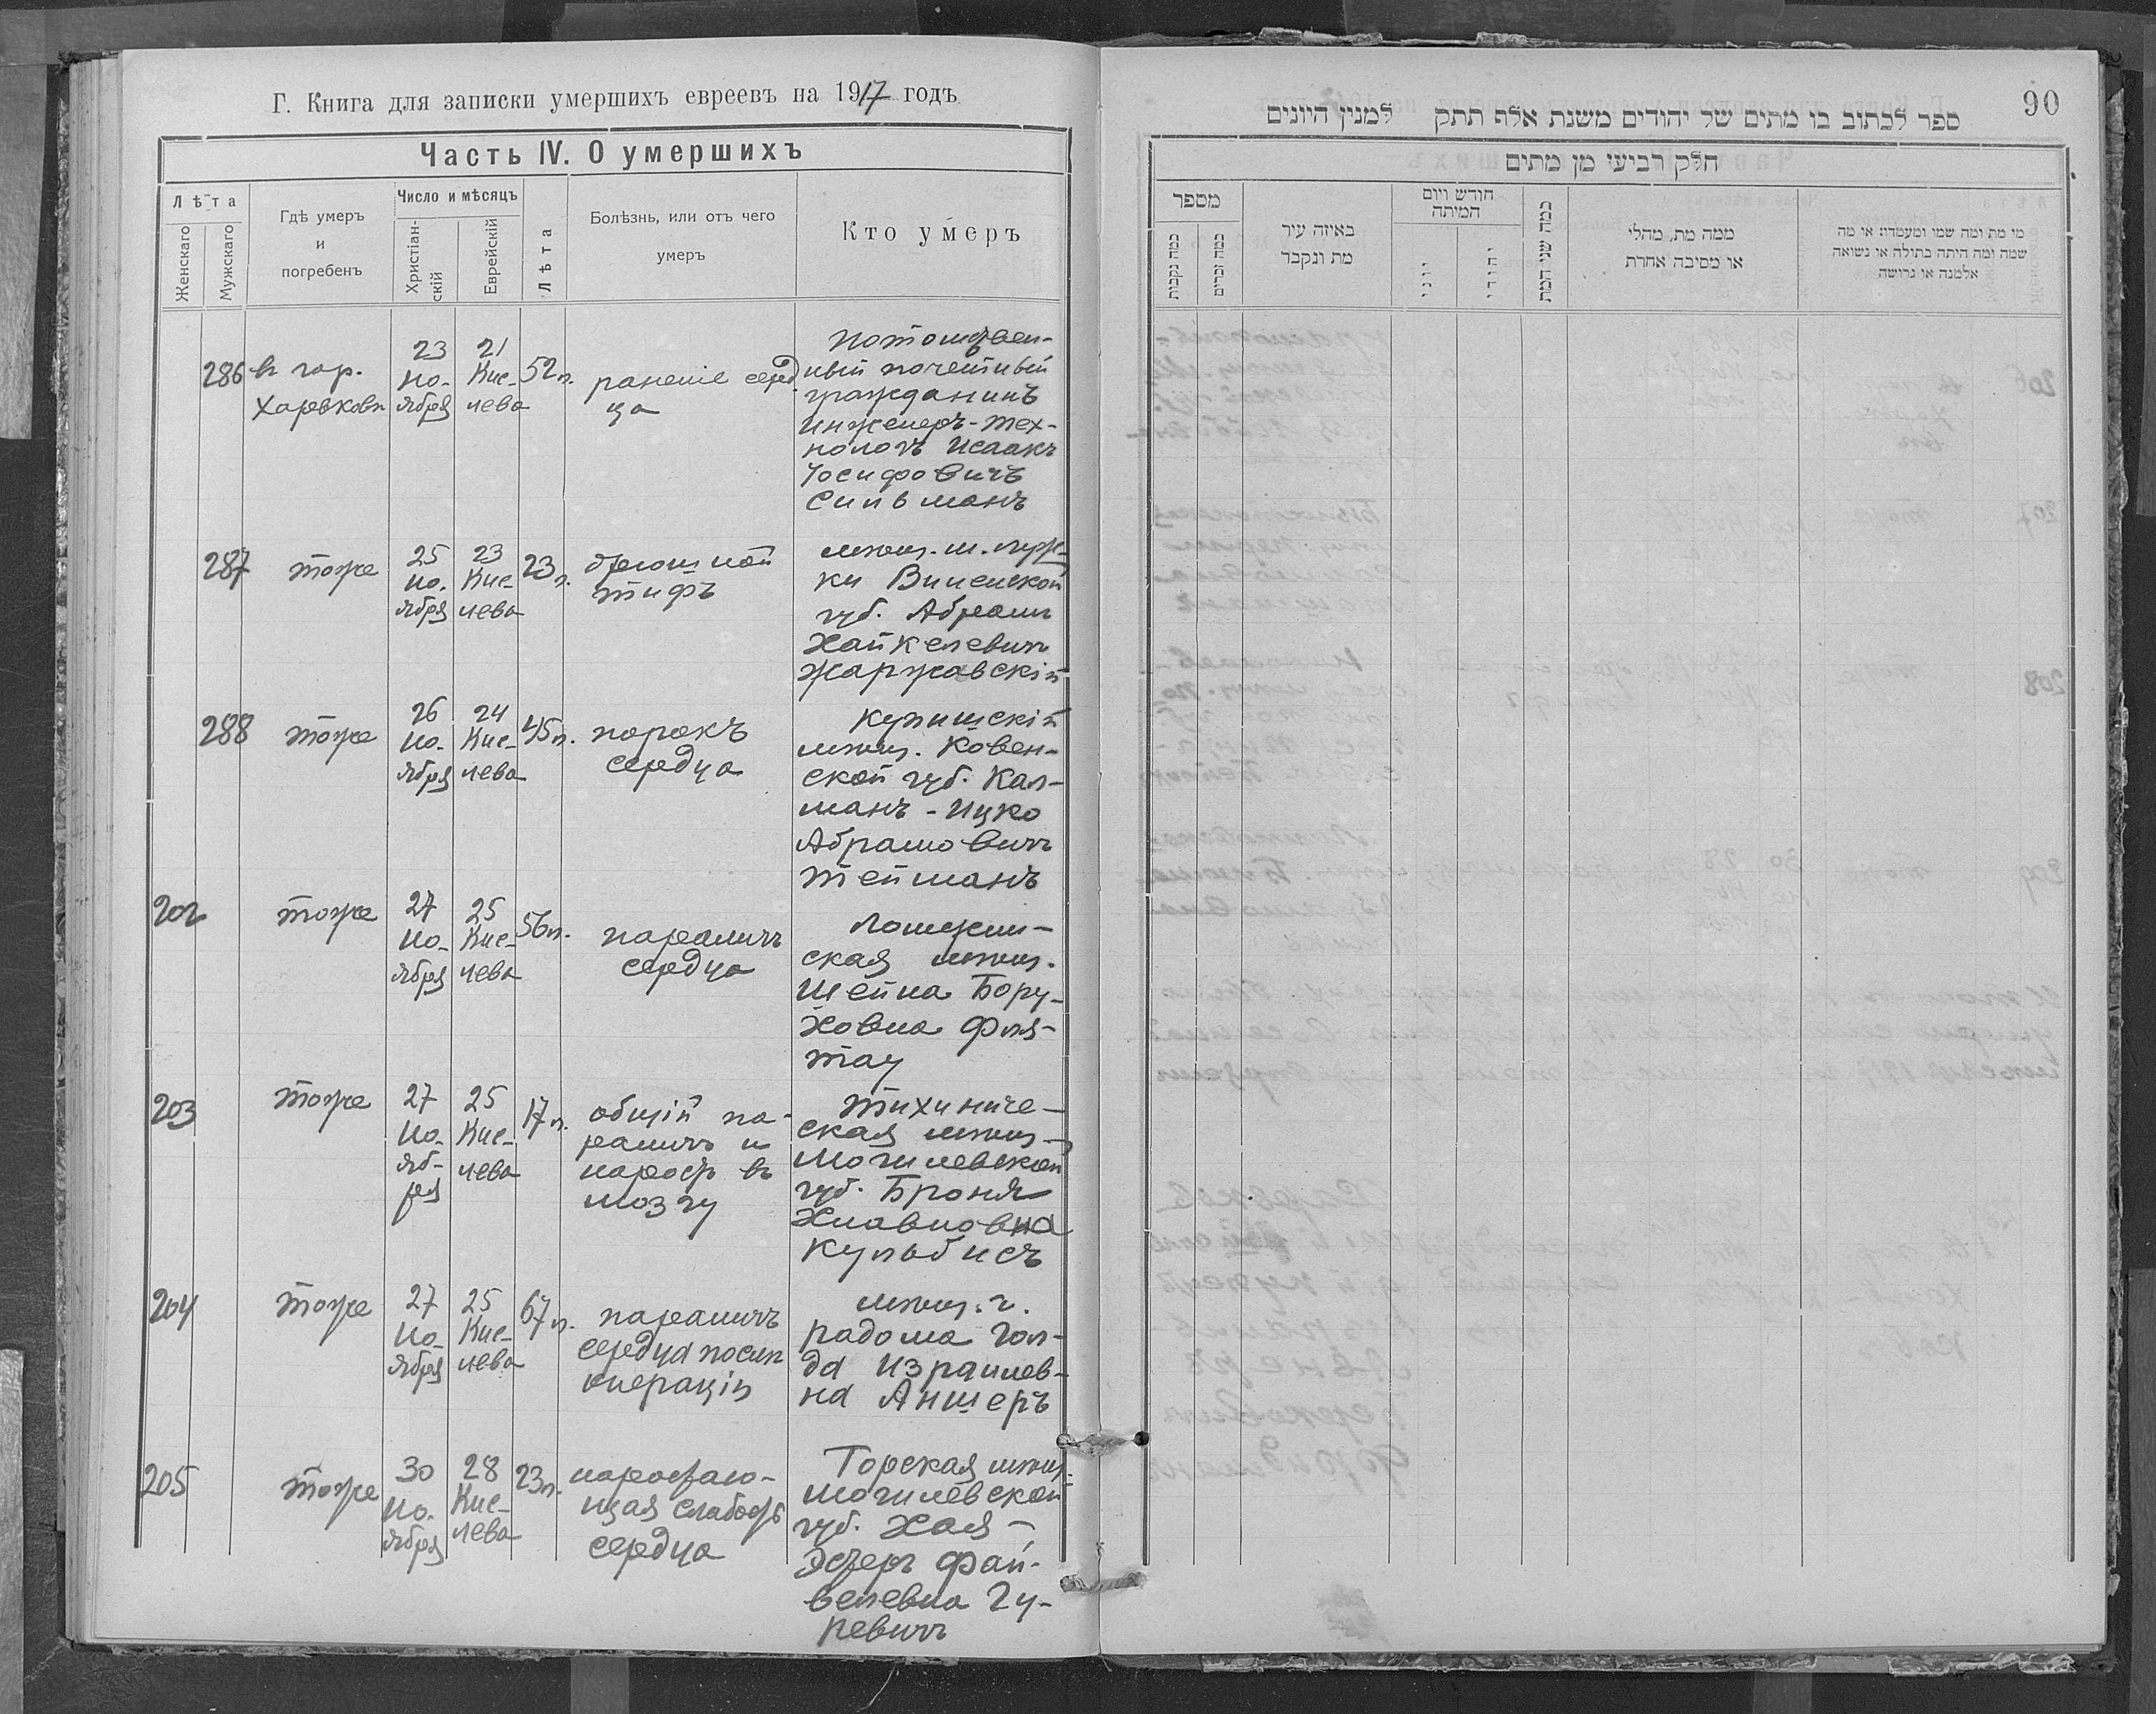 Г. Книга для записки умершихъ евреевъ на 1917 годъ
Часть IV. О умершихъ
Лѣта
Женскаго
Мужскаго
Гдѣ умеръ
и
погребенъ
Число и мѣсяцъ
Христіан-
скій
Еврейскій
Лѣта
Болѣзнь, или отъ чего
умеръ
Кто умеръ
286
в гор.
Харьковѣ
23
но-
ября
21
Кис-
лева
52 л.
раненіе серд
ца
потомствен-
ный почетный
гражданинъ
инженеръ-тех-
нологъ Исаакъ
Іосифовичъ
Сильманъ
287
тоже
25
но-
ября
23
Кис-
лева
23 л.
брюшной
тифъ
мѣщ. м.
ки Виленской
губ. Абрамъ
Хайкелевичъ
Жаржавскій
288
тоже
26
но-
ября
24
Кис-
лева
45 л.
порокъ
сердца
Купишскій
мѣщ. Ковен-
ской губ. Кал-
манъ-Ицко
Абрамовичъ
Тейманъ
202
тоже
27
но-
ября
25
Кис-
лева
56 л.
параличъ
сердца
ская мѣщ.
Шейна Бору-
ховна Фля-
тау
203
тоже
27
но-
яб-
ря
25
Кис-
лева
17 л.
общій па-
раличъ и
наростъ въ
мозгу
Тихиниче-
ская мѣщ-
Могилевской
губ. Броня
Хлавновна
Кульбисъ
204
тоже
27
но-
ября
25
Кис-
лева
67 л.
параличъ
сердца послѣ
операціи
мѣщ. г.
Радома Гол-
да Израилев-
на Аншеръ
205
тоже
30
но-
ября
28
Кис-
лева
23 л.
наростаю-
щая слабость
сердца
Горская мѣщ.
Могилевской
губ. Хая-
Эстеръ Фай-
велевна Гу-
ревичъ
90
ספר לכתוב בו מתים של יהודים משנת אלף תתק למנין היונים
חלק רביעי מן מתים
מספר
כמה נקבות
כמה זכרים
באיזה עיר
מת ונקבר
חודש ויום
המיתה
יוני
יהודי
כמה שני המת
ממה מת, מחלי
או מסיבה אחרת
מי מת ומה שמו ומעמדו או מה
שמה ומה היתה בתולה או נשואה
אלמנה או גרושה